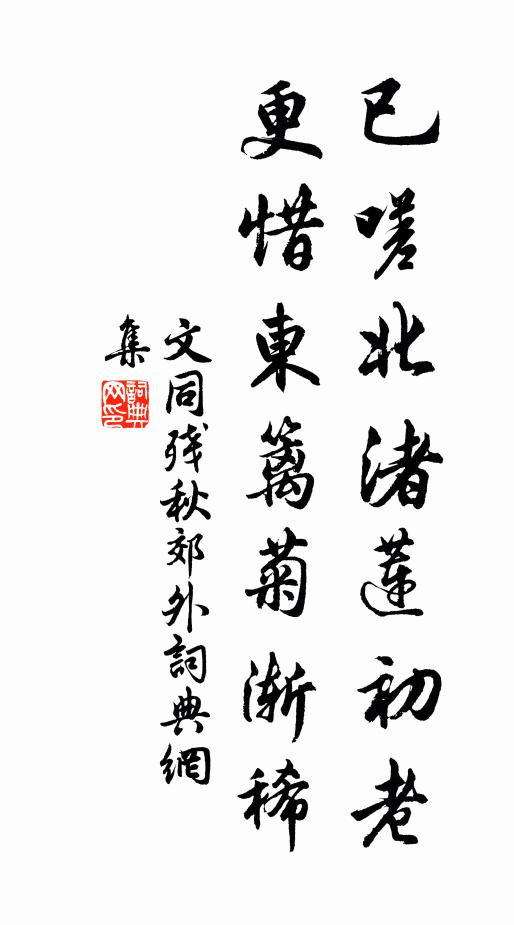 已嗟北渚蓮初老
更惜東籬菊漸稀
文同殘秋郊外詞典網
集
詞典網印